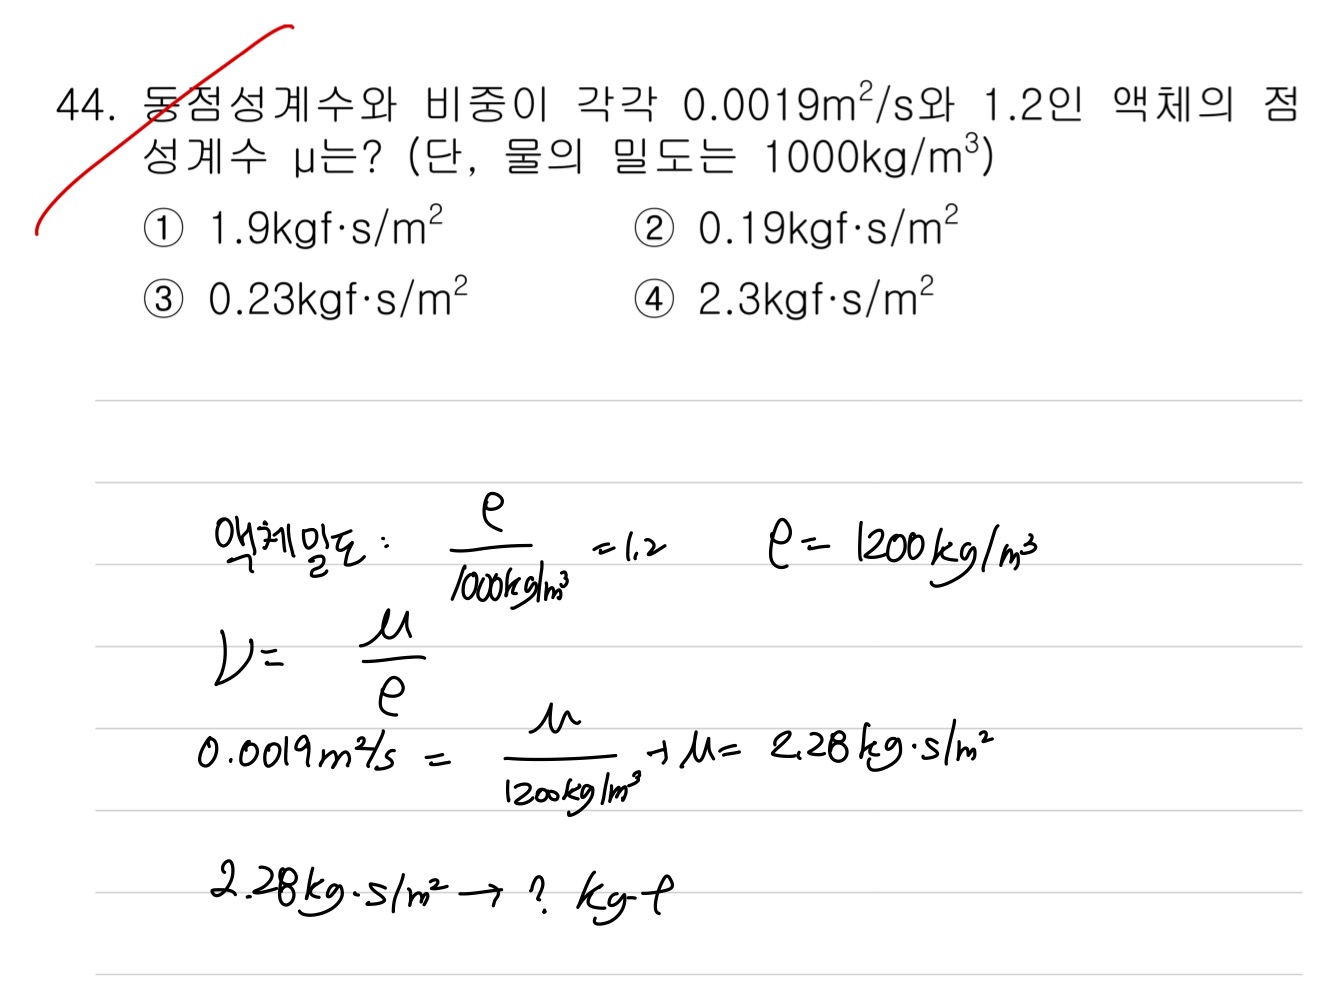 44. 동점성계수와 비중이 각각 0.0019m²/s와 1.2인 액체의 점
성계수 μ는? (단, 물의 밀도는 1000kg/m³)
① 1.9kgf·s/m² ② 0.19kgf·s/m²
③ 0.23kgf·s/m² ④ 2.3kgf·s/m²
액체밀도 : ρ/1000kg/m³ = 1.2 ρ = 1200kg/m³
ν = μ/ρ
0.0019m²/s = μ/1200kg/m³ → μ = 2.28kg·s/m²
2.28kg·s/m² → ? kg-f